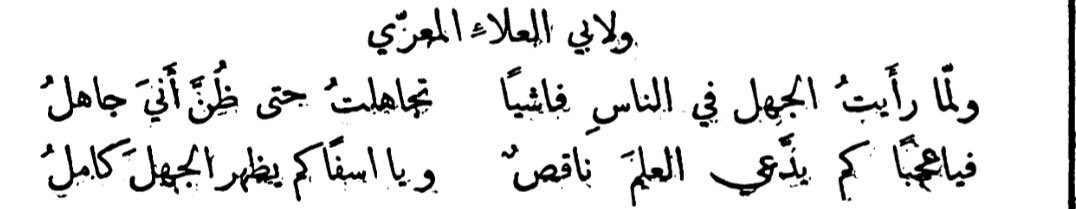 ولابي العلاء المعرّي
ولمّا رأَيتُ الجهل في الناسِ فاشياً تجاهلتُ حتى ظُنَّ أَنيَ جاهلُ
فياعجباً كم يدَّعي العلمَ ناقصٌ ويا اسفاً كم يظهر الجهلَ كاملُ